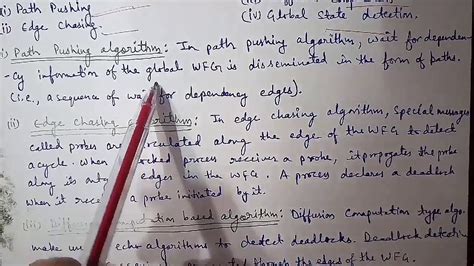 (i) Path Pushing
(ii) Edge Chasing
(iv) Global State detection.
(i) Path Pushing algorithm: In path pushing algorithm, wait for dependen
-cy information of the global WFG is disseminated in the form of paths
(i.e., a sequence of wait for dependency edges).
(ii) Edge Chasing algorithm: In edge chasing algorithm, Special messages
called probes are circulated along the edge of the WFG to detect
a cycle. When blocked process receives a probe, it propagates the probe
along its edges in the WFG. A process declares a deadlock
when it rece a probe initiated by it.
(iii) Diffusion Computation based algorithm: Diffusion Computation type algo-
make echo algorithms to detect deadlocks. Deadlock detection
through the edges of the WFG.